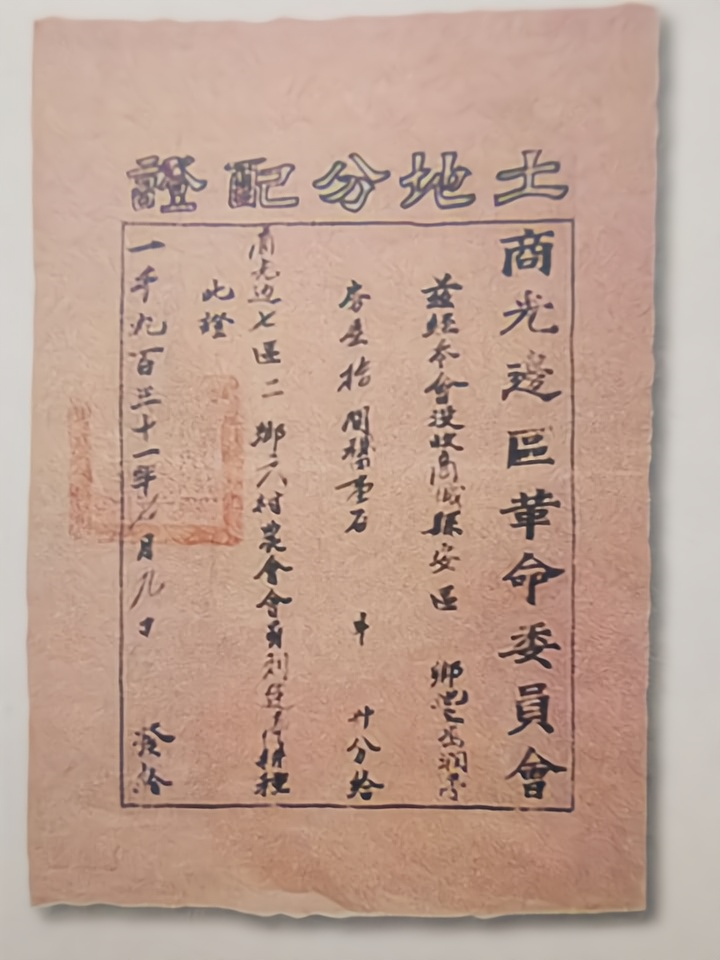 土地分配證
商光邊區革命委員會
茲經本會沒收商城縣安區 鄉
房屋 間 石 斗 廾分給
商光边七區二鄉六村農會會員 耕種
此證
一千九百三十一年 月九日 發給